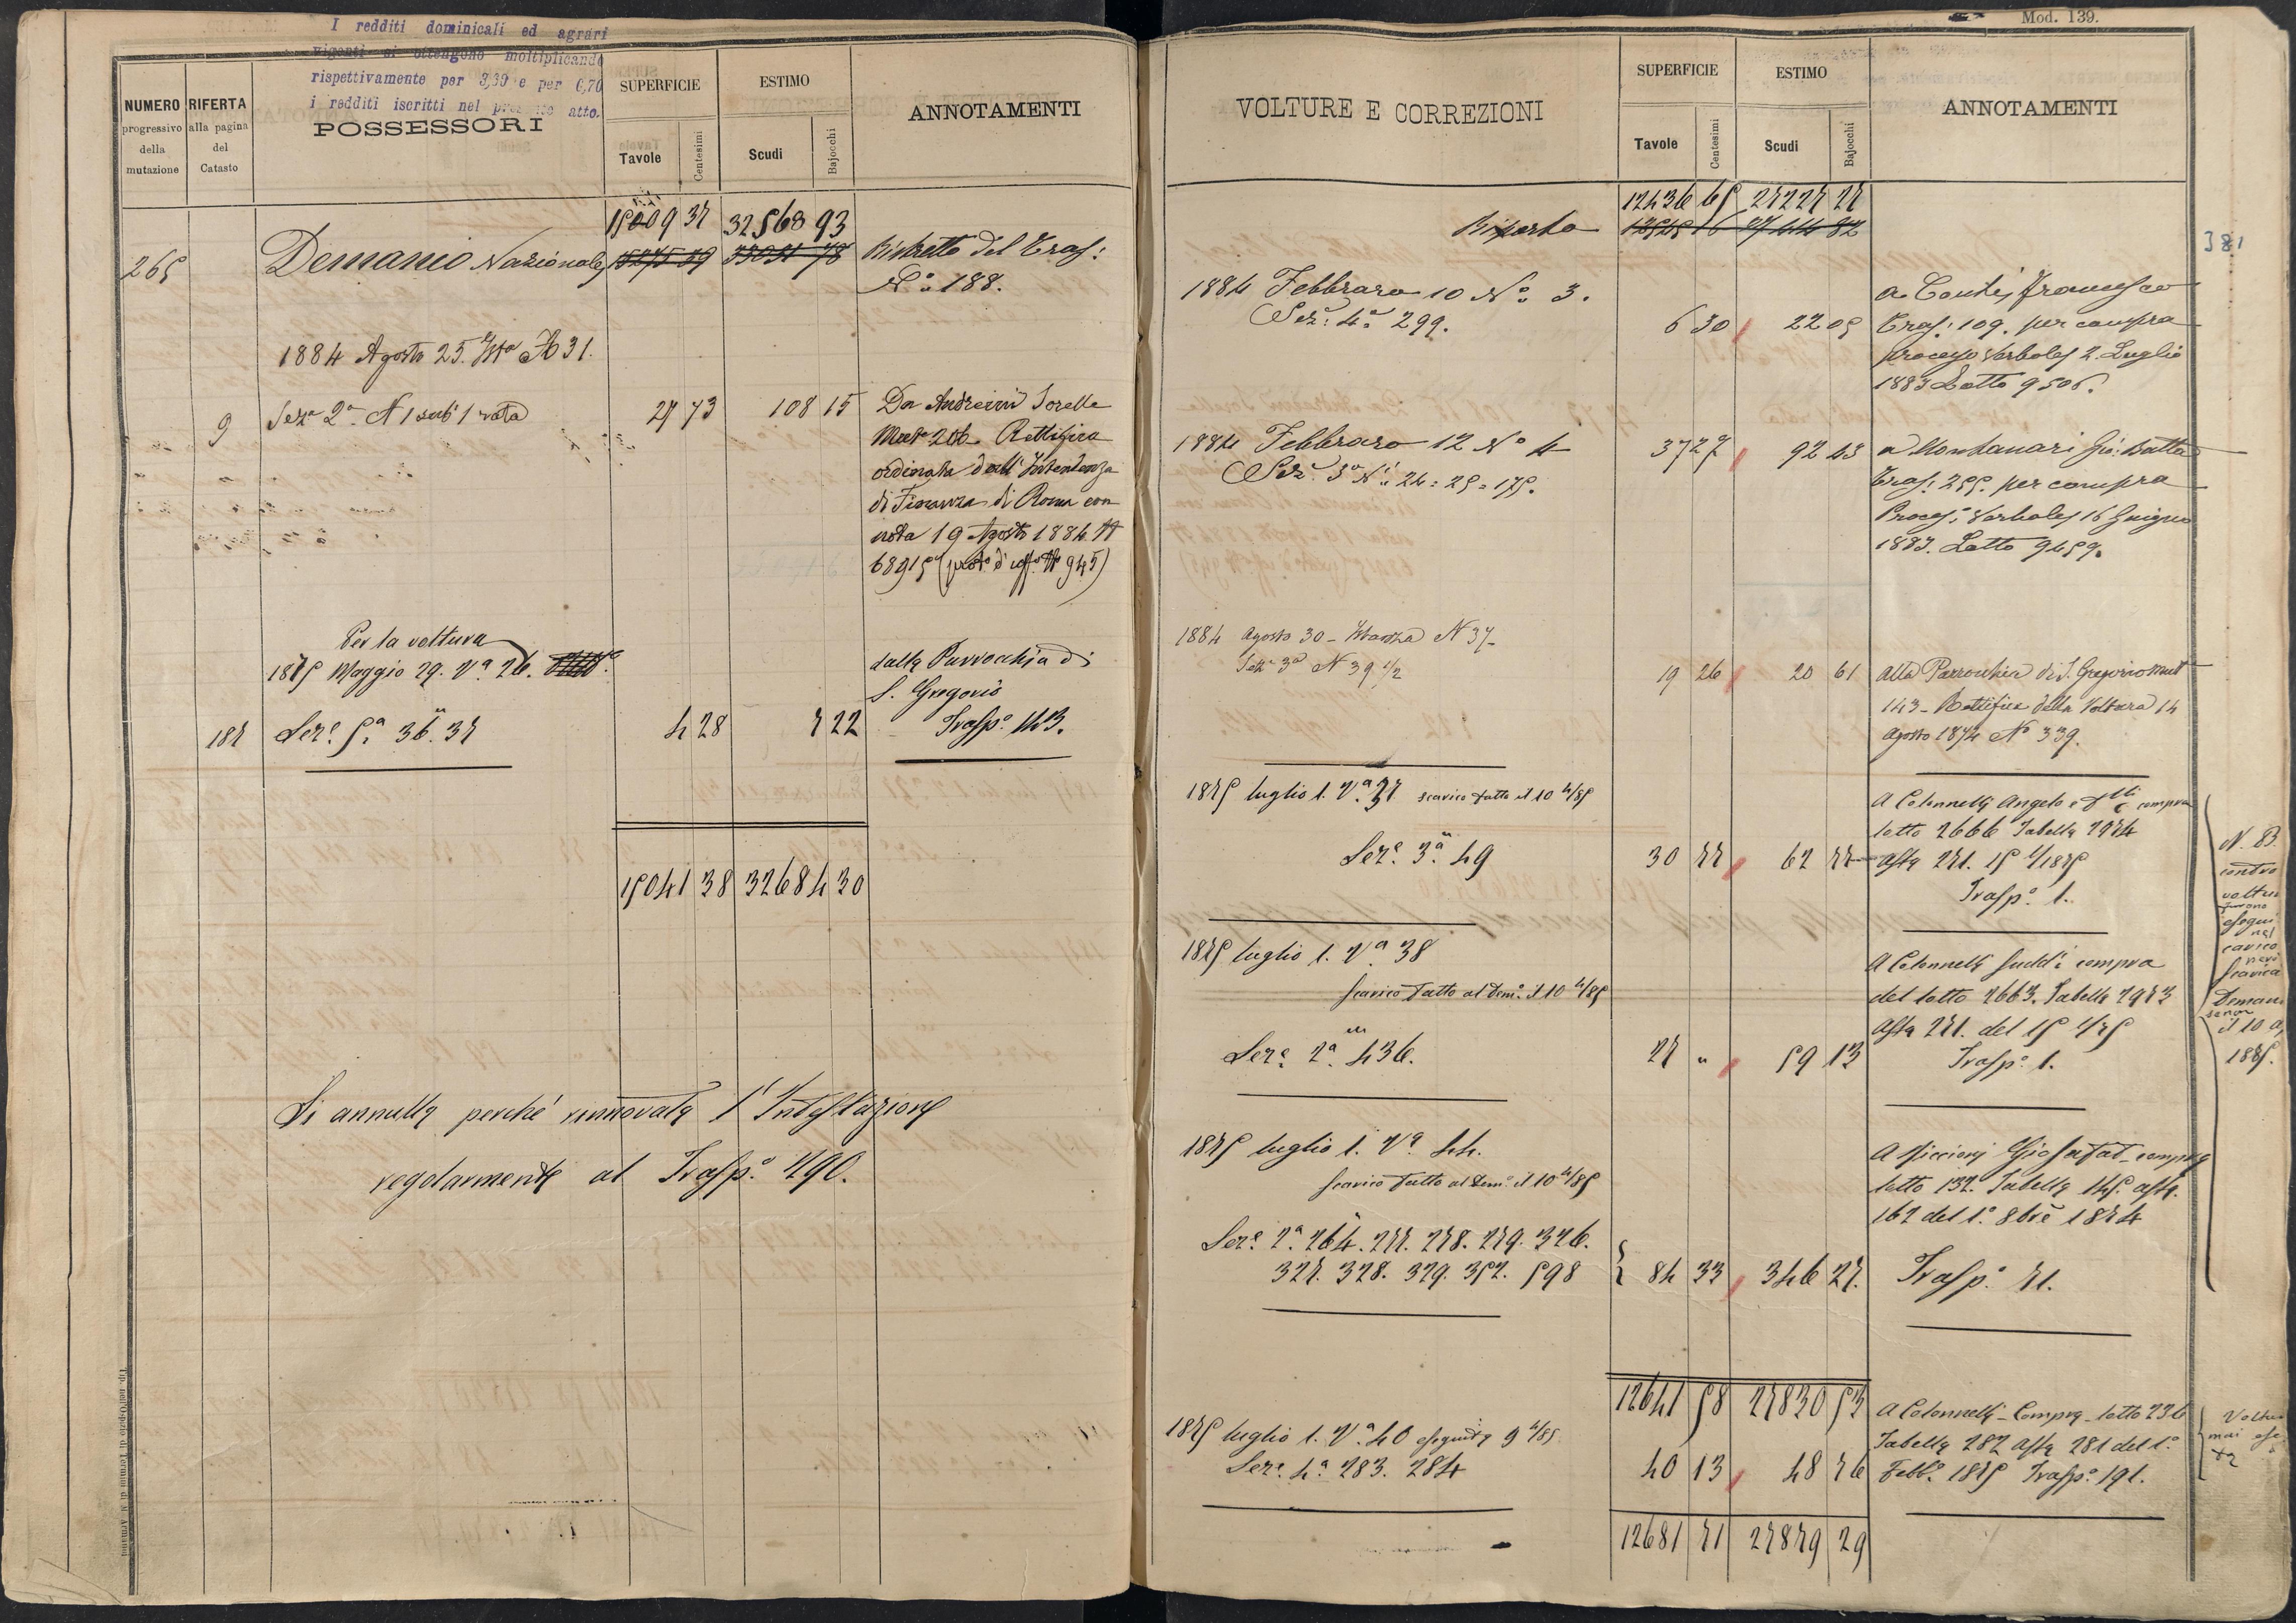 I redditi dominicali ed agrari
vigenti si ottengono moltiplicando
rispettivamente per 3,30 e per 6,70
i redditi iscritti nel presente atto.
NUMERO
progressivo
della
mutazione
RIFERTA
alla pagina
del
Catasto
POSSESSORI
SUPERFICIE
Tavole
Centesimi
ESTIMO
Scudi
Bajocchi
ANNOTAMENTI
15009 37 32568 93
265 Demanio Nazionale 15275 59 33051 78 Ristretto del Trasp:
N.° 188.
1884 Agosto 25. Ista N 31.
9 Sez.e 2a N 1 sub 1 rata 27 73 108 15 Da Andreini Sorelle
Mut.e 206. Rettifica
ordinata dall'Intendenza
di Finanza di Roma con
nota 19 Agosto 1884 N
68915 (prot.o d'uff.o N 945)
Per la voltura
1875 Maggio 29. V.a 26. dalla Parrocchia di
S. Gregorio
187 Sez.e 5.a 36. 37 4 28 7 22 Trasp.o 143.
15041 38 32684 30
Si annulla perché rinnovata l'Intestazione
regolarmente al Trasp.o 490.
Mod. 139.
VOLTURE E CORREZIONI
SUPERFICIE
Tavole
Centesimi
ESTIMO
Scudi
Bajocchi
ANNOTAMENTI
381
12436 65 27227 27
Riporto
1884 Febbraro 10 N.o 3.
Sez: 4.a 299. 6 30 22 05
a Conti Francesco
Trasp: 109. per compra
processo Verbale 2. Luglio
1883 Lotto 9506.
1884 Febbraro 12 N.o 4
Sez. 3.a N.i 24 = 25 = 175. 37 27 92 43
a Montanari Gio: Batta
Trasp: 255. per compra
Proces: Verbale 16 Giugno
1883. Lotto 9459.
1884 Agosto 30 - Istanza N 37-
Sez.e 3a N 39 1/2 19 26 20 61
alla Parrocchia di S. Gregorio Mut.
143 - Rettifica della Voltura 14
Agosto 1874 N.o 339.
1875 luglio 1. V.a 37 scarico fatto il 10 4/85
Sez.e 3.a 49 30 77 62 77
A Colonnelli Angelo e F.lli compra
lotto 2666 Tabella 2974
Asta 271. 15 1/1875
Trasp.o 1.
1875 luglio 1. V.a 38
scarico fatto al Dem.o il 10 4/85
Sez.e 2.a 436. 27 " 59 13
A Colonnelli sudd.i compra
del lotto 2663. Tabella 2973
Asta 271. del 15 1/75
Trasp.o 1.
1875 luglio 1. V.a 44.
scarico fatto al Dem.o il 10 4/85
Sez.e 2.a 264. 277. 278. 279. 326.
327. 328. 329. 352. 598 84 33 346 27.
A Giosafat compra
lotto 132. Tabella 145. asta
162 del 1.o 8bre 1874
Trasp.o 71.
N. B.
contro
voltur
furono
esegui
nel
carico
però
scarica
Deman
il 10 a
1885.
12641 58 27830 53
1875 luglio 1. V.a 40 eseguita 9 4/85
Sez.e 4.a 283. 284 40 13 48 76
A Colonnelli - Compra - lotto 236
Tabella 282 asta 281 del 1.o
Febb.o 1875 Trasp.o 191.
Voltur
mai ese
ta
12681 71 27879 29